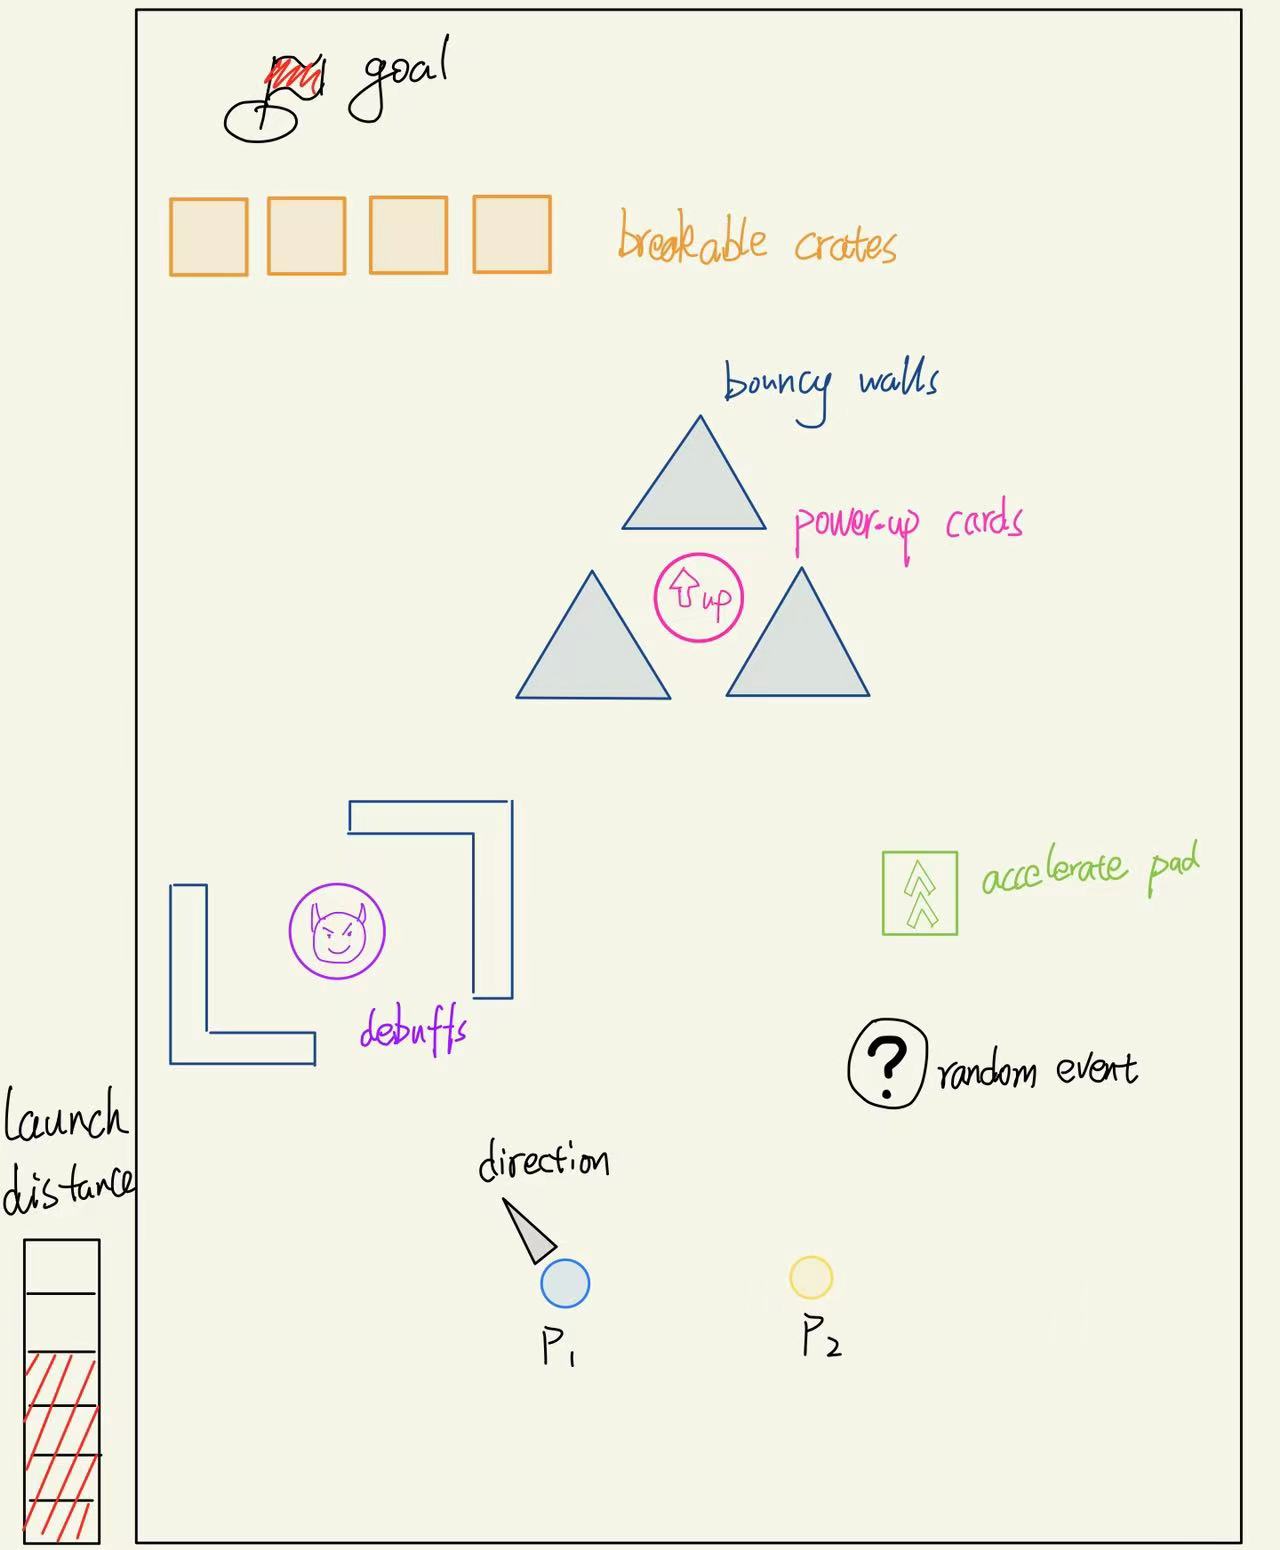 goal
breakable crates
bouncy walls
power-up cards
up
accelerate pad
debuffs
? random event
Launch
distance
direction
P1
P2